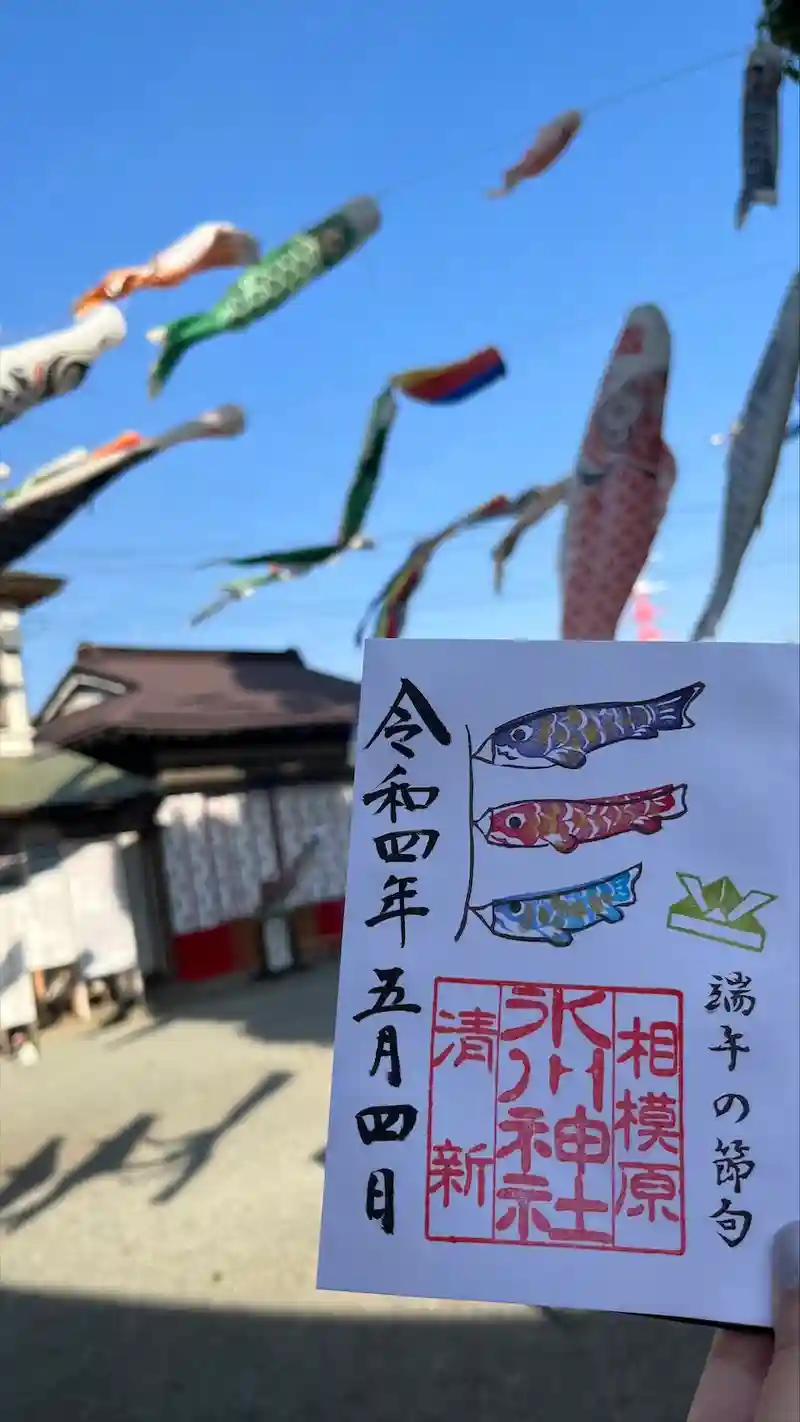 端午の節句
相模原
氷川神社
清新
令和四年五月四日